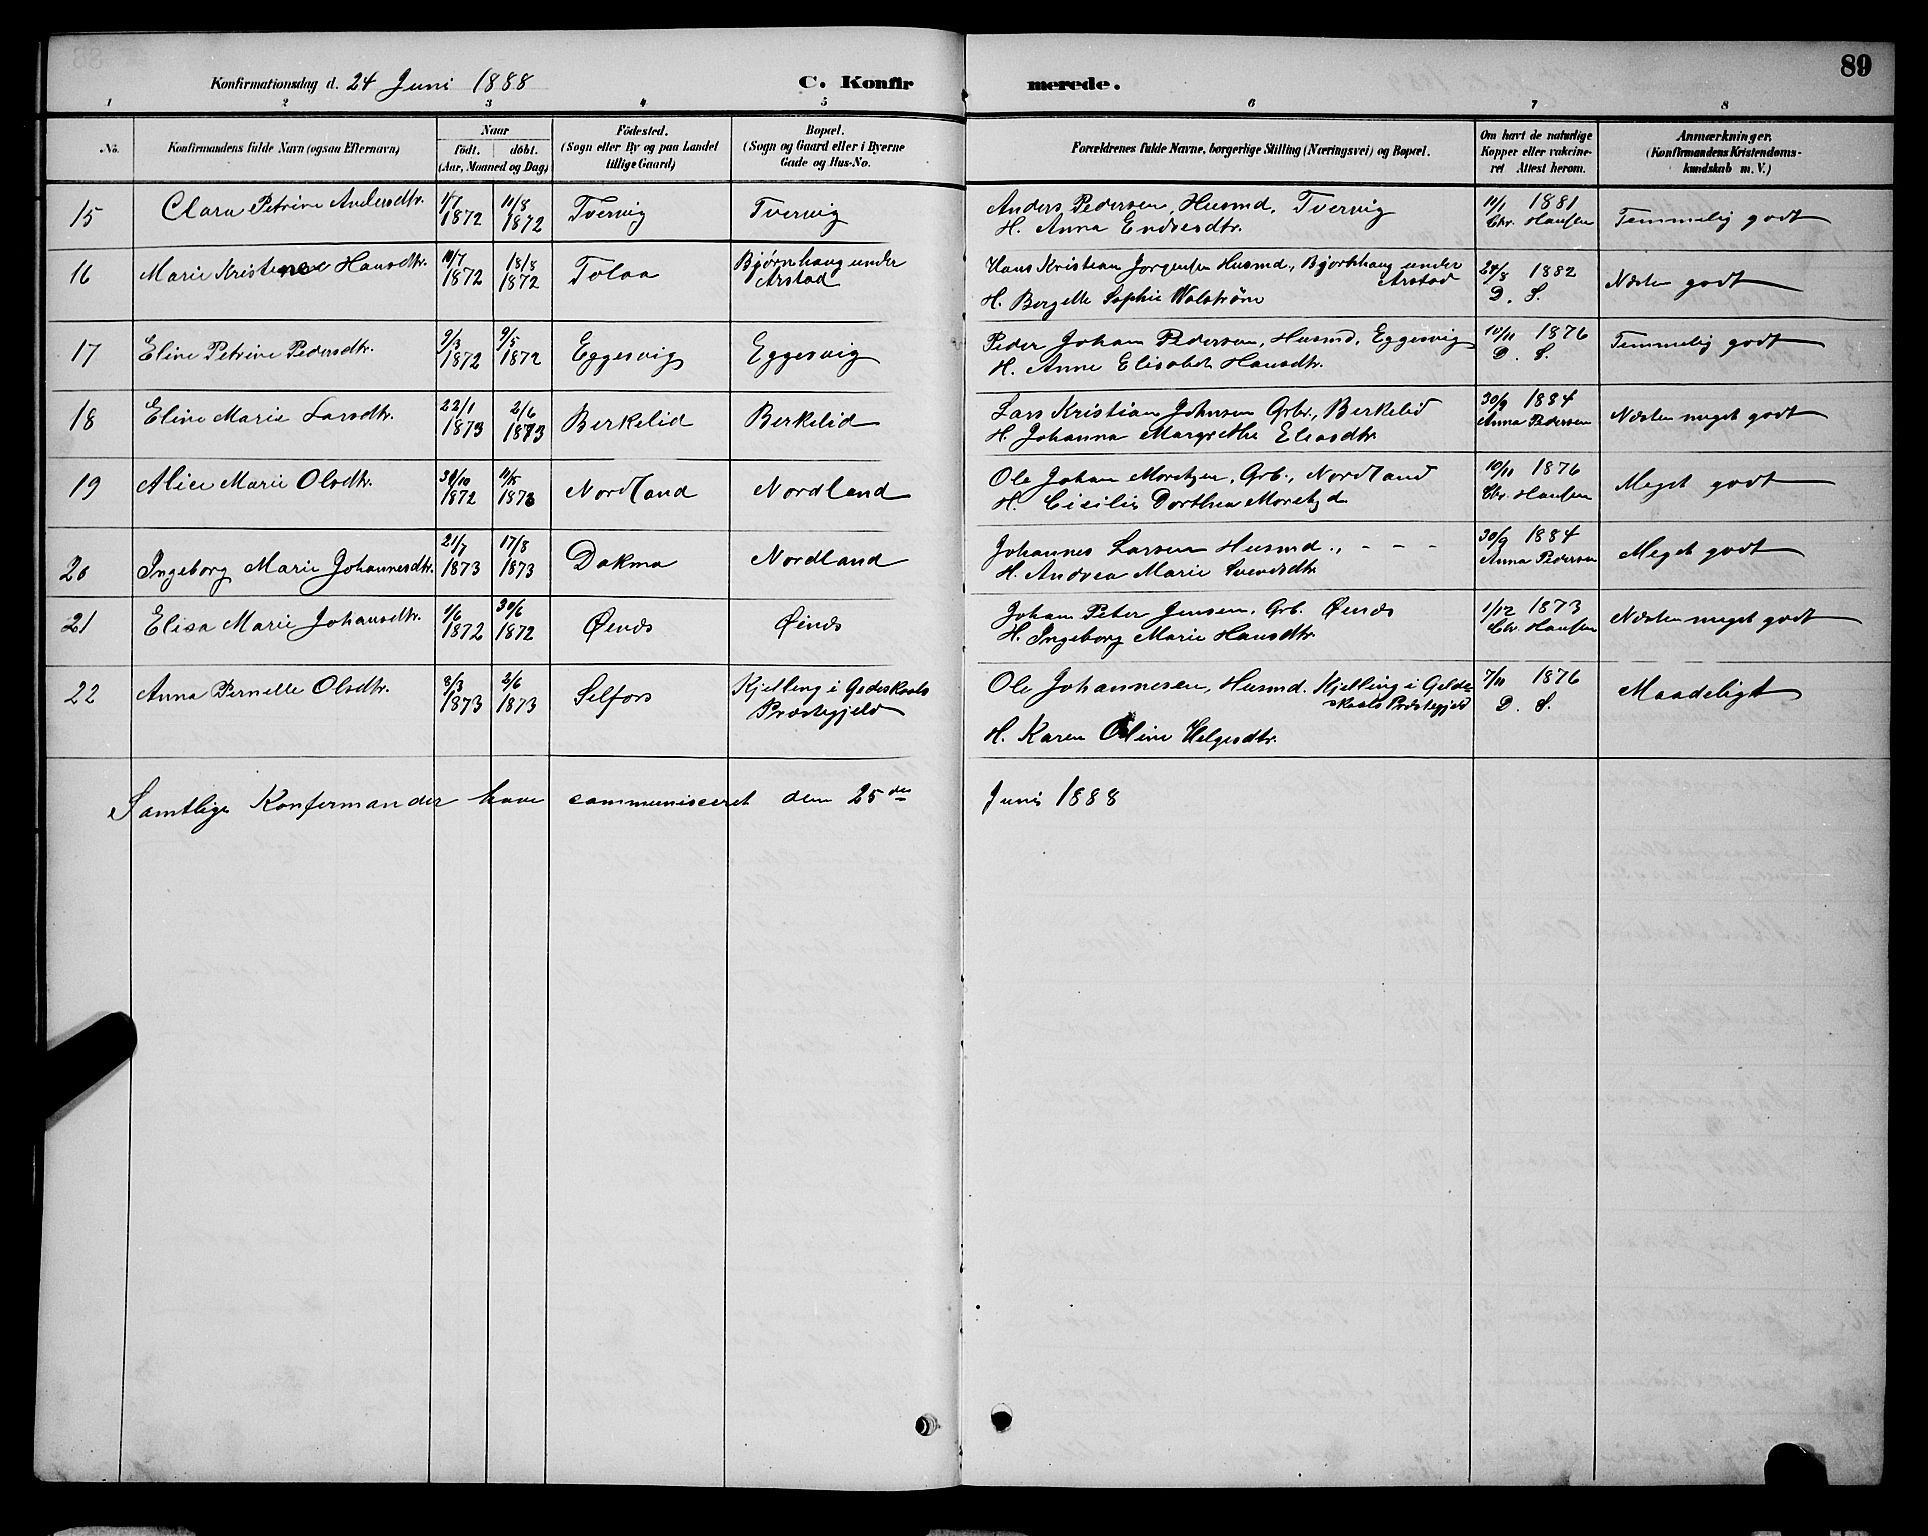 Konfirmationsdag d. 24 Juni 1888 C. Konfirmerede. 89
1 2 3 4 5 6 7 8
No. Konfirmandens fulde Navn (ogsaa Efternavn) Naar født. døbt. (Aar, Maaned og Dag) Fødested. (Sogn eller By og paa Landet tillige Gaard) Bopæl. (Sogn og Gaard eller i Byerne Gade og Hus-No. Forældrenes fulde Navne, borgerlige Stilling (Næringsvei) og Bopæl. Om havt de naturlige Kopper eller vakcineret Attest herom. Anmærkninger. (Konfirmandens Kristendomskundskab m. V.)
15 Clara Petrine Andersdtr. 1/7 1872 11/8 1872 Tvervig Tvervig Anders Pedersen, Husmd, Tvervig 11/1 1881 Temmelig godt
H. Anna Endresdtr. Chr. Hansen
16 Marie Kristine Hansdtr. 11/7 1872 18/8 1872 Tolaa Bjørnhaug under Arstad Hans Kristian Jørgensen Husmd., Bjørkhaug under Arstad 24/8 1882 Næsten godt
H. Bergette Sophie Walstrøm D. S.
17 Eline Petrine Pedersdtr. 9/3 1872 9/5 1872 Eggesvig Eggesvig Peder Johan Pedersen, Husmd, Eggesvig 10/11 1876 Temmelig godt
H. Anne Elisabet Hansdtr. D. S.
18 Eline Marie Larsdtr. 22/1 1873 2/6 1873 Berkelid Berkelid Lars Kristian Johnsen Grbr., Berkelid 30/9 1884 Næsten meget godt
H. Johanna Margrethe Eliasdtr. Anna Pedersen
19 Alice Marie Olsdtr. 30/10 1872 Nordland Nordland Ole Johan Moritzen, Grb., Nordland 10/11 1876 Meget godt
H. Cisilie Dorthea Moritzd Chr. Hansen
20 Ingeborg Marie Johannesdtr. 21/7 1873 17/8 1873 Dakma Nordland Johannes Larsen Husmd., - - - 30/9 1884 Meget godt
H. Andrea Marie Svensdtr. Anna Pedersen
21 Elisa Marie Johansdtr. 1/6 1872 30/6 1872 Øinæs Øinæs Johan Peter Jensen, Grb. Øinæs 1/12 1873 Næsten meget godt
H. Ingeborg Marie Hansdtr. Chr. Hansen
22 Anna Pernelle Olsdtr. 8/3 1873 2/6 1873 Selfors Kjelling i Gedeskaals Præstegjeld Ole Johannesen, Husmd. Kjelling i Gildeskaals Præstegjeld 7/11 1876 Maadeligt
H. Karen Oline Helgesdtr. D. S.
Samtlige Konfermander have communiceret den 25de Juni 1888